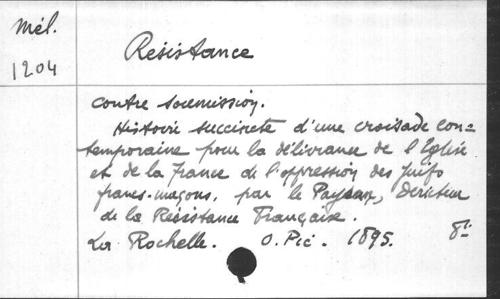 Mél.
1204
Résistance
contre soumission.
Histoire succincte d'une croisade con=
temporaine pour la délivrance de l'Eglise
et de la France de l'oppression des Juifs
francs-maçons, par le Payeur, Directeur
de la Résistance Française.
La Rochelle. O. Pic. 1895. 8º